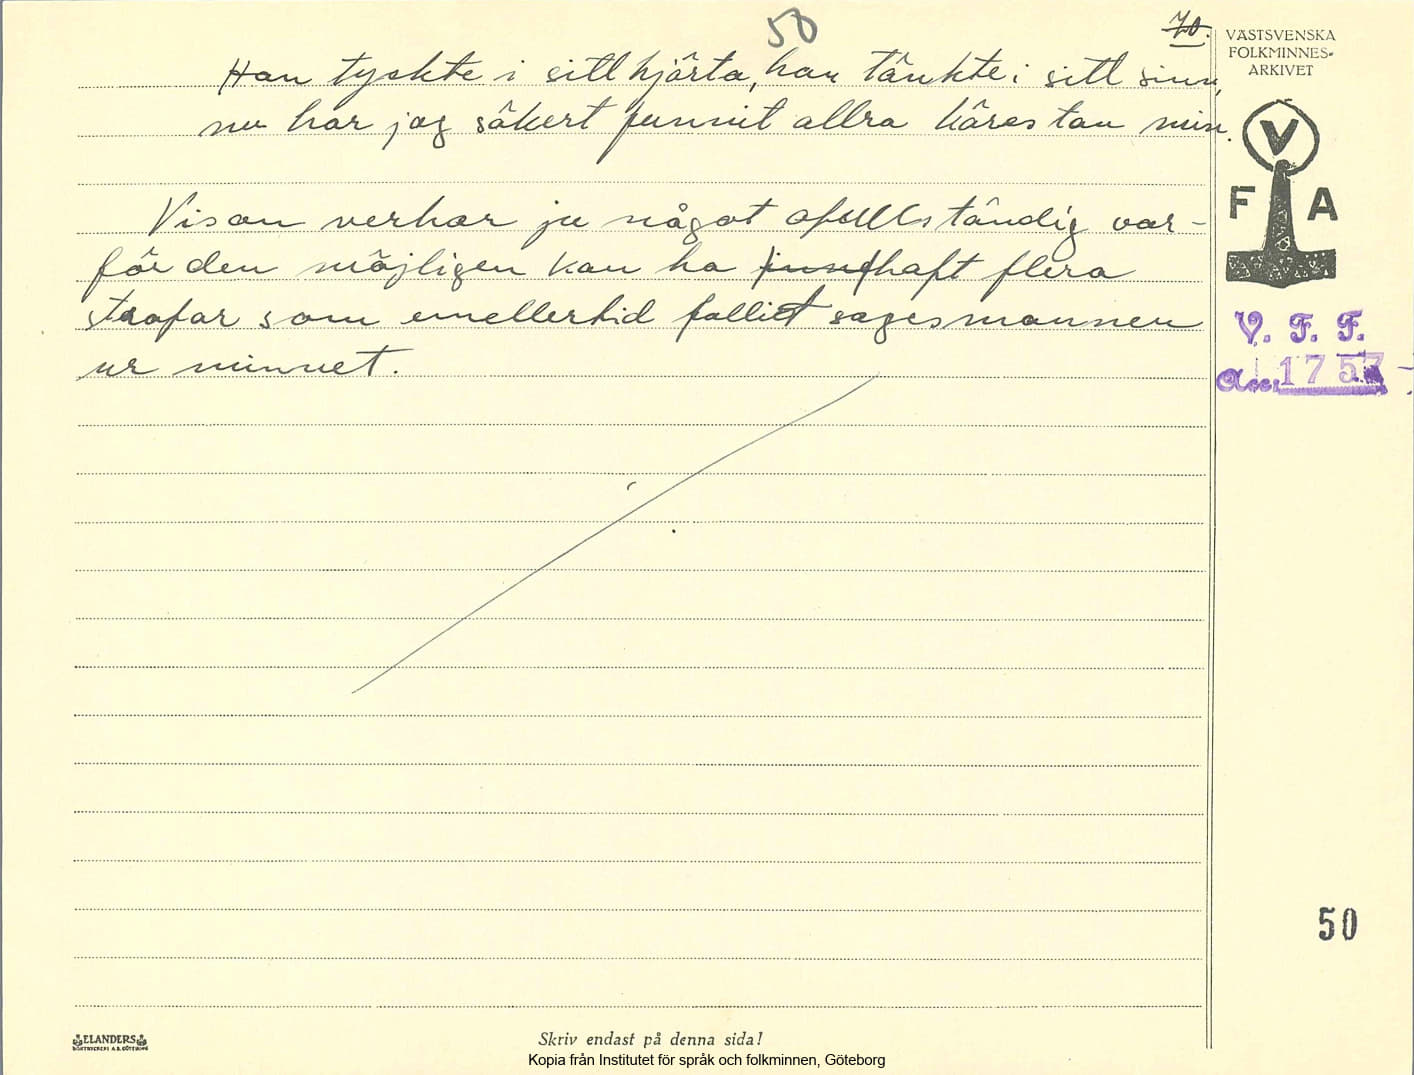 50
70.
VÄSTSVENSKA
FOLKMINNES-
ARKIVET
Han tyckte i sitt hjärta, han tänkte i sitt sinn,
nu har jag säkert funnit allra kärestan min.
V
F A
Visan verkar ju något ofullständig var-
för den möjligen kan ha haft flera
strofar som emellertid fallit sagesmannen
ur minnet.
V. F. F.
Acc. 1757
50
ELANDERS
BOKTRYCKERI A.B. GÖTEBORG
Skriv endast på denna sida!
Kopia från Institutet för språk och folkminnen, Göteborg